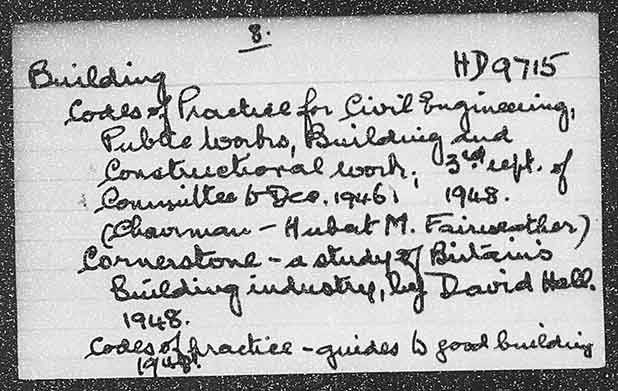 8.
Building HD9715
Codes of Practice for Civil Engineering,
Public Works, Building and
Constructional work; 3rd rept. of
Committee to Dec. 1946; 1948.
(Chairman - Hubert M. Fairweather)
Cornerstone - a study of Britain's
Building industry, by David Hall.
1948.
Codes of practice - guides to good building
1948.